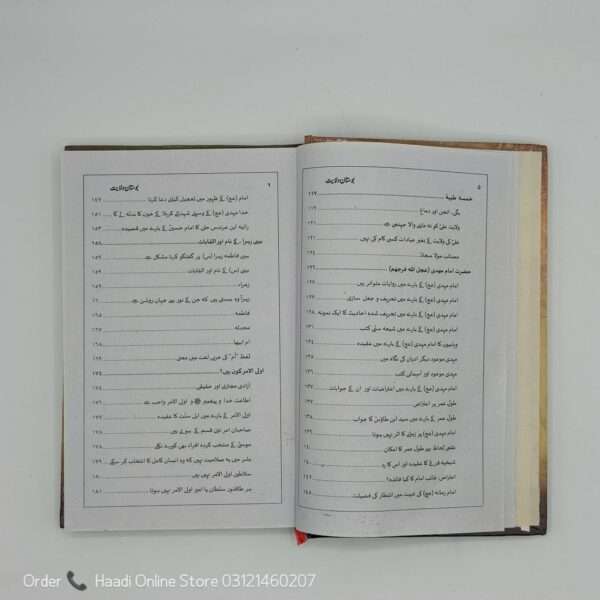 بوستان ولایت ۵
خمسہ طیبہ ۱۱۷
دیگر انجن اور دماغ
ولایت علیؑ کو نہ ماننے والا جہنمی ہے ۱۲۱
علیؑ کی ولایت کے بغیر عبادات کسی کام کی نہیں
مصائب مولا سجادؑ
حضرت امام مہدی (عجل اللہ فرجہم) ۱۲۶
امام مہدی (عج) کے بارے میں روایات متواتر ہیں
امام مہدی (عج) کے بارے میں تحریف و جعل سازی
امام مہدی (عج) کے بارے میں تحریف شدہ احادیث کا ایک نمونہ
امام مہدی (عج) کے بارے میں شیعہ سنی کتب
وہابیوں کا امام مہدی (عج) کے بارے میں عقیدہ
مہدی موعود دیگر ادیان کی نگاہ میں ۱۳۵
مہدی موعود اور آسمانی کتب
امام مہدی (عج) کے بارے میں اعتراضات اور ان کے جوابات
طول عمر پر اعتراض ۱۳۷
طول عمر کے بارے میں سید ابن طاؤسؒ کا جواب ۱۳۸
امام مہدی (عج) پر زمانے کا اثر نہیں ہوتا ۱۳۹
عقلی لحاظ سے طول عمر کا امکان ۱۴۰
شیخیہ فرقے کا عقیدہ اور اس کا رد
اعتراض: غائب امام کا کیا فائدہ؟ ۱۴۲
امام زمانہ (عج) کی غیبت میں انتظار کی فضیلت
بوستان ولایت ۶
امام (عج) کے ظہور میں تعجیل کیلئے دعا کرنا ۱۴۷
خدا مہدی (عج) کے وسیلے شہدائے کربلا کے خون کا بدلہ لے گا ۱۵۱
کا امام حسینؑ کے بارے میں قصیدہ
بی بی زہراؑ کے نام اور القابات ۱۵۸
بی بی فاطمہ زہرا (س) پر گفتگو کرنا مشکل ہے
بی بی (س) کے نام اور القابات ۱۵۹
زہراء ۱۵۹
زہراؑ وہ ہستی ہیں کہ جن کے نور سے جہان روشن ہے
فاطمہ ۱۶۵
محدثہ ۱۶۸
ام ابیہا
لفظ "اُم" کی عربی لغت میں معنی
اولی الامر کون ہیں؟ ۱۷۴
آزادی مجازی اور حقیقی
اطاعت خدا و پیغمبرؐ و اولی الامر واجب ہے
اولی الامر کے بارے میں اہل سنت کا عقیدہ
صاحبان امر تین قسم کے ہوتے ہیں
موسیٰؑ کے منتخب کردہ افراد بھی کھوٹے نکلے ۱۷۸
بشر میں یہ صلاحیت نہیں کہ وہ انسان کامل کا انتخاب کر سکے ۱۷۹
سلاطین اولی الامر نہیں ہیں
ہر طاقتور سلطان یا امیر اولی الامر نہیں ہوتا ۱۸۱
Order Haadi Online Store 03121460207